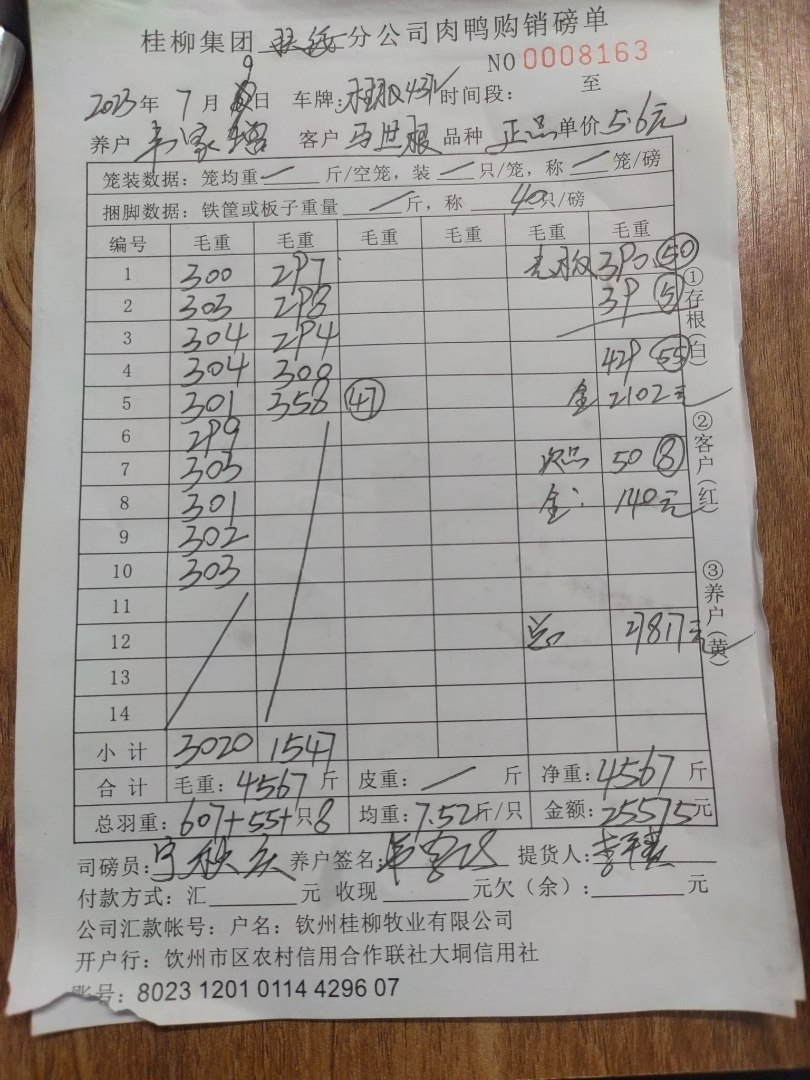 桂柳集团 分公司肉鸭购销磅单
NO 0008163
2023年 7月 9日 车牌: 时间段: 至
养户 客户 马世银 品种 正品 单价 5.6元
笼装数据: 笼均重 斤/空笼, 装 只/笼, 称 笼/磅
捆脚数据: 铁筐或板子重量 斤, 称 40只/磅
编号 毛重 毛重 毛重 毛重 毛重 毛重
1 300 297 50
2 303 298 39 5
3 304 294
4 304 300 429 55
5 301 358 47 金 2102元
6 299
7 303 次品 50 8
8 301 金: 140元
9 302
10 303
11
12 总 27817元
13
14
小计 3020 1547
合计 毛重: 4567斤 皮重: 斤 净重: 4567斤
总羽重: 607+55+8只 均重: 7.52斤/只 金额: 25575元
司磅员: 养户签名: 提货人:
付款方式: 汇 元 收现 元欠(余): 元
公司汇款帐号: 户名: 钦州桂柳牧业有限公司
开户行: 钦州市区农村信用合作联社大垌信用社
账号: 8023 1201 0114 4296 07
①存根(白)
②客户(红)
③养户(黄)